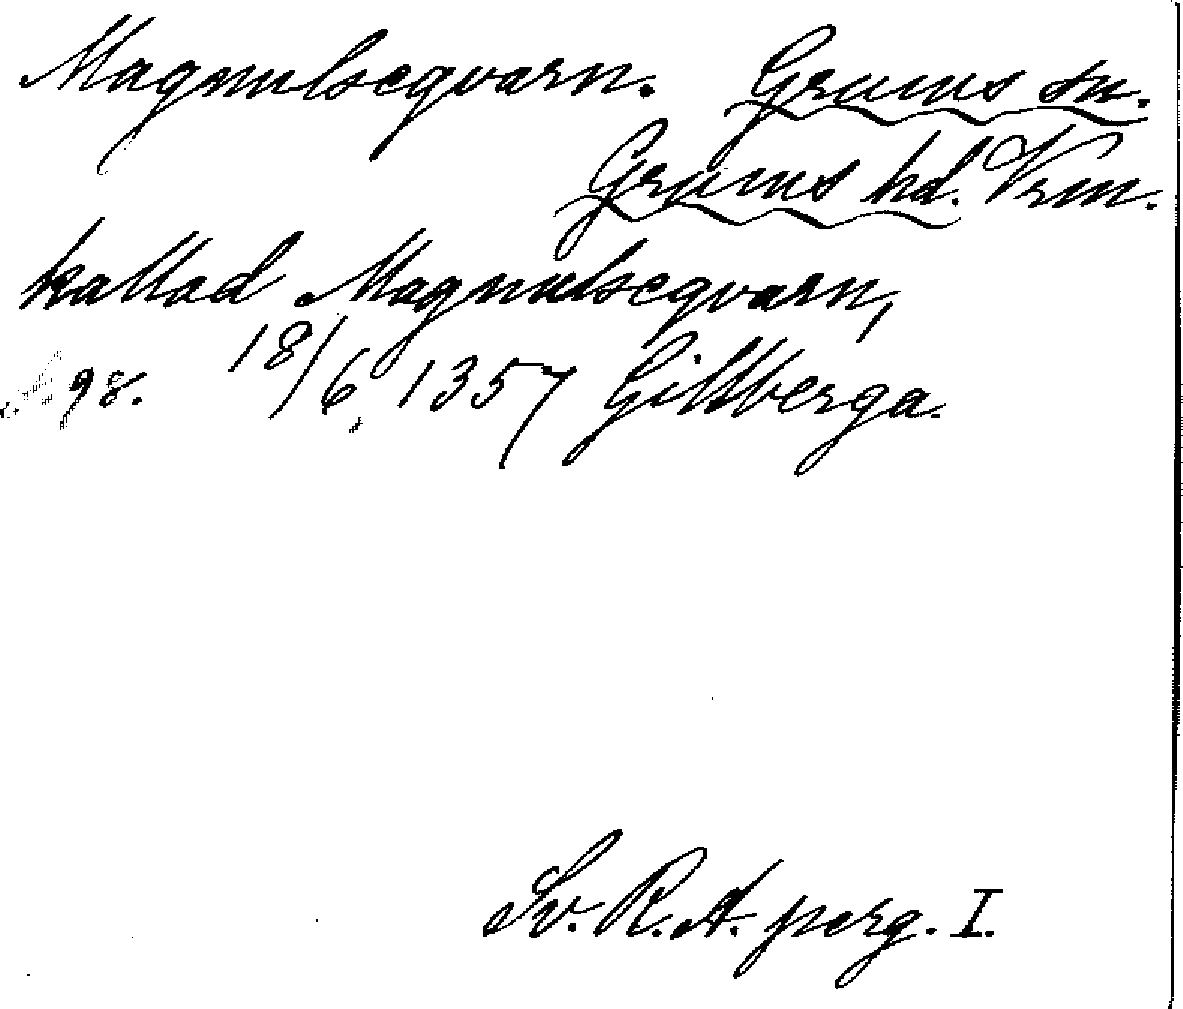 Magnulseqvarn. Grums sn.
Grums hd. Vrm.
kallad Magnulseqvarn,
98. 18/6 1357 Gillberga.
Sv. R. A. perg. I.